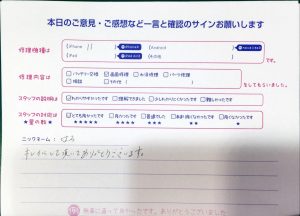 本日のご意見・ご感想など一言と確認のサインお願いします
修理機種は
iPhone 11
Android
iPad
その他
です。
修理内容は
バッテリー交換 画面修理 水没修理 パーツ修理
相談 その他
をしてもらいました。
スタッフの説明は
わかりやすかった 理解できました 少しわかりにくかった 難しかった
スタッフの対応は
★星の数★
とても良かった 良かった 普通でした あまり良くなかった 良くなかった
★★★★★ ★★★★ ★★★ ★★ ★
ニックネーム: はる
キレイにして頂いてありがとうございます。